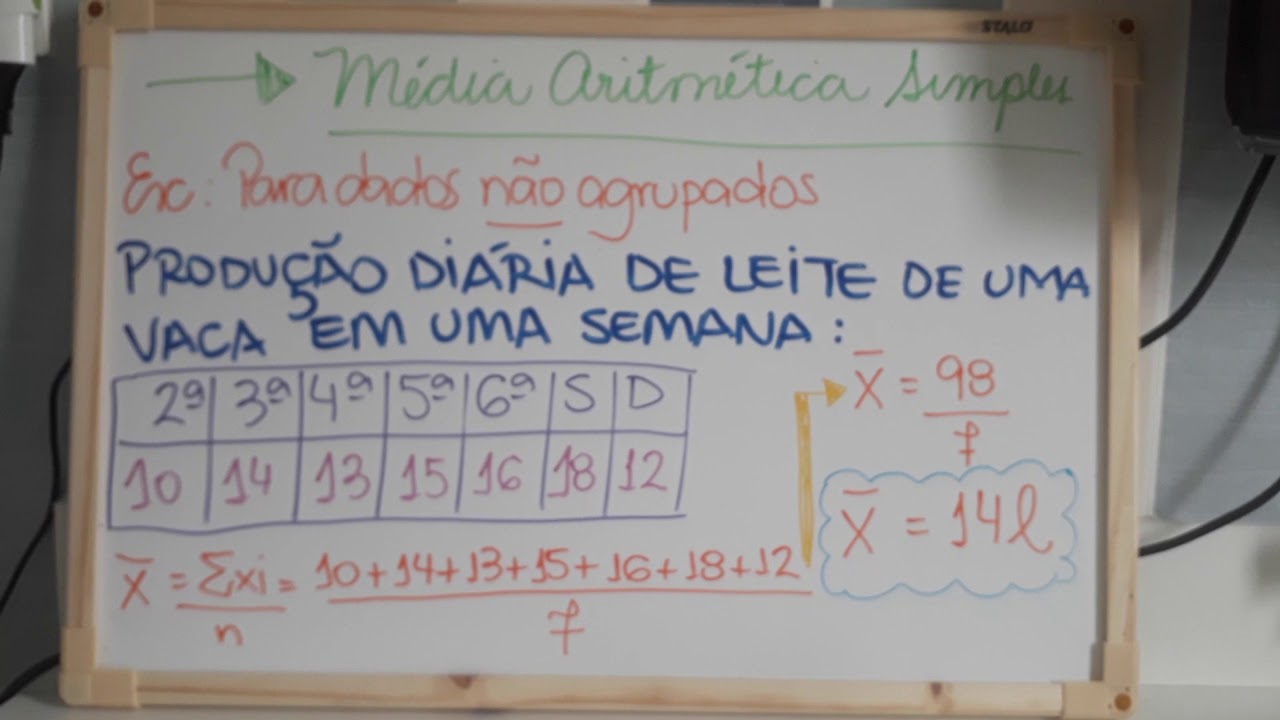 STALO
Média Aritmética Simples
Exc: Para dados não agrupados
PRODUÇÃO DIÁRIA DE LEITE DE UMA
VACA EM UMA SEMANA:
2ª 3ª 4ª 5ª 6ª S D
10 14 13 15 16 18 12
X̄ = Σxi = 10+14+13+15+16+18+12
n 7
X̄ = 98
7
X̄ = 14l